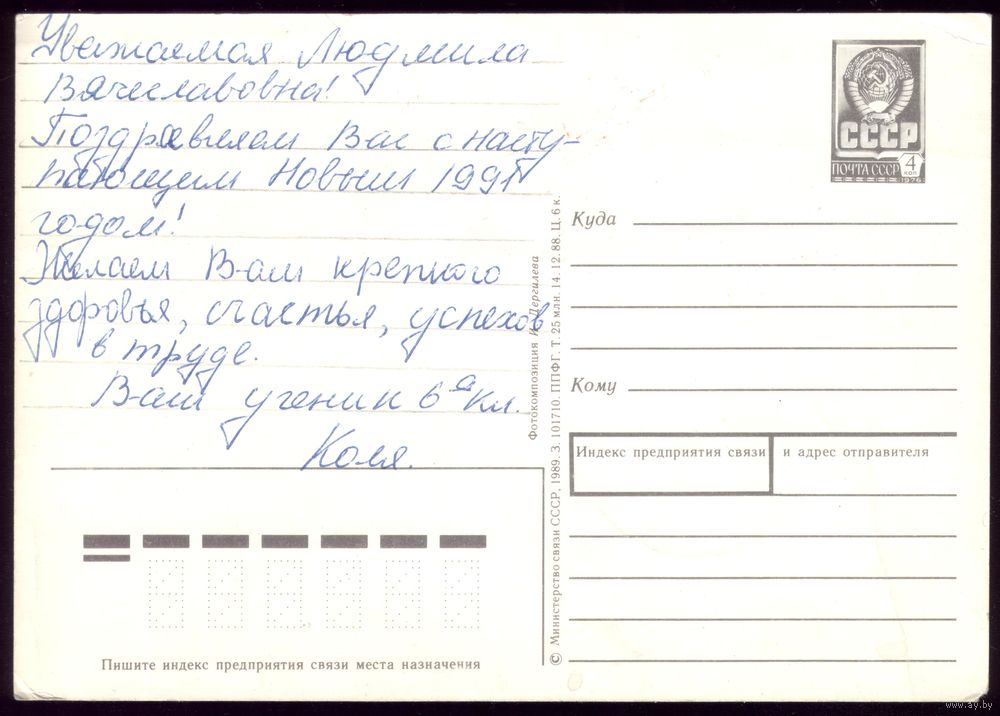 Уважаемая Людмила
Вячеславовна!
Поздравляем Вас с насту-
пающим Новым 1991
годом!
Желаем Вам крепкого
здоровья, счастья, успехов
в труде.
Ваш ученик 6а кл.
Коля.
СССР
ПОЧТА СССР
4
КОП
1976
Куда
Кому
Индекс предприятия связи
и адрес отправителя
Фотокомпозиция И. Дергилева
© Министерство связи СССР, 1989. З. 101710. ППФГ. Т. 25 млн. 14.12.88. Ц. 6 к.
Пишите индекс предприятия связи места назначения
www.ay.by